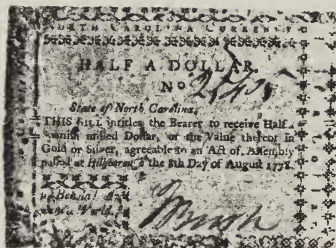 NORTH CAROLINA CURRENCY
HALF A DOLLAR
No
State of North Carolina,
THIS BILL entitles the Bearer to receive Half a
Spanish milled Dollar, or the Value thereof in
Gold or Silver, agreeable to an Act of Assembly
passed at Hillsborough the 8th Day of August 1778.
Behold! A
World.